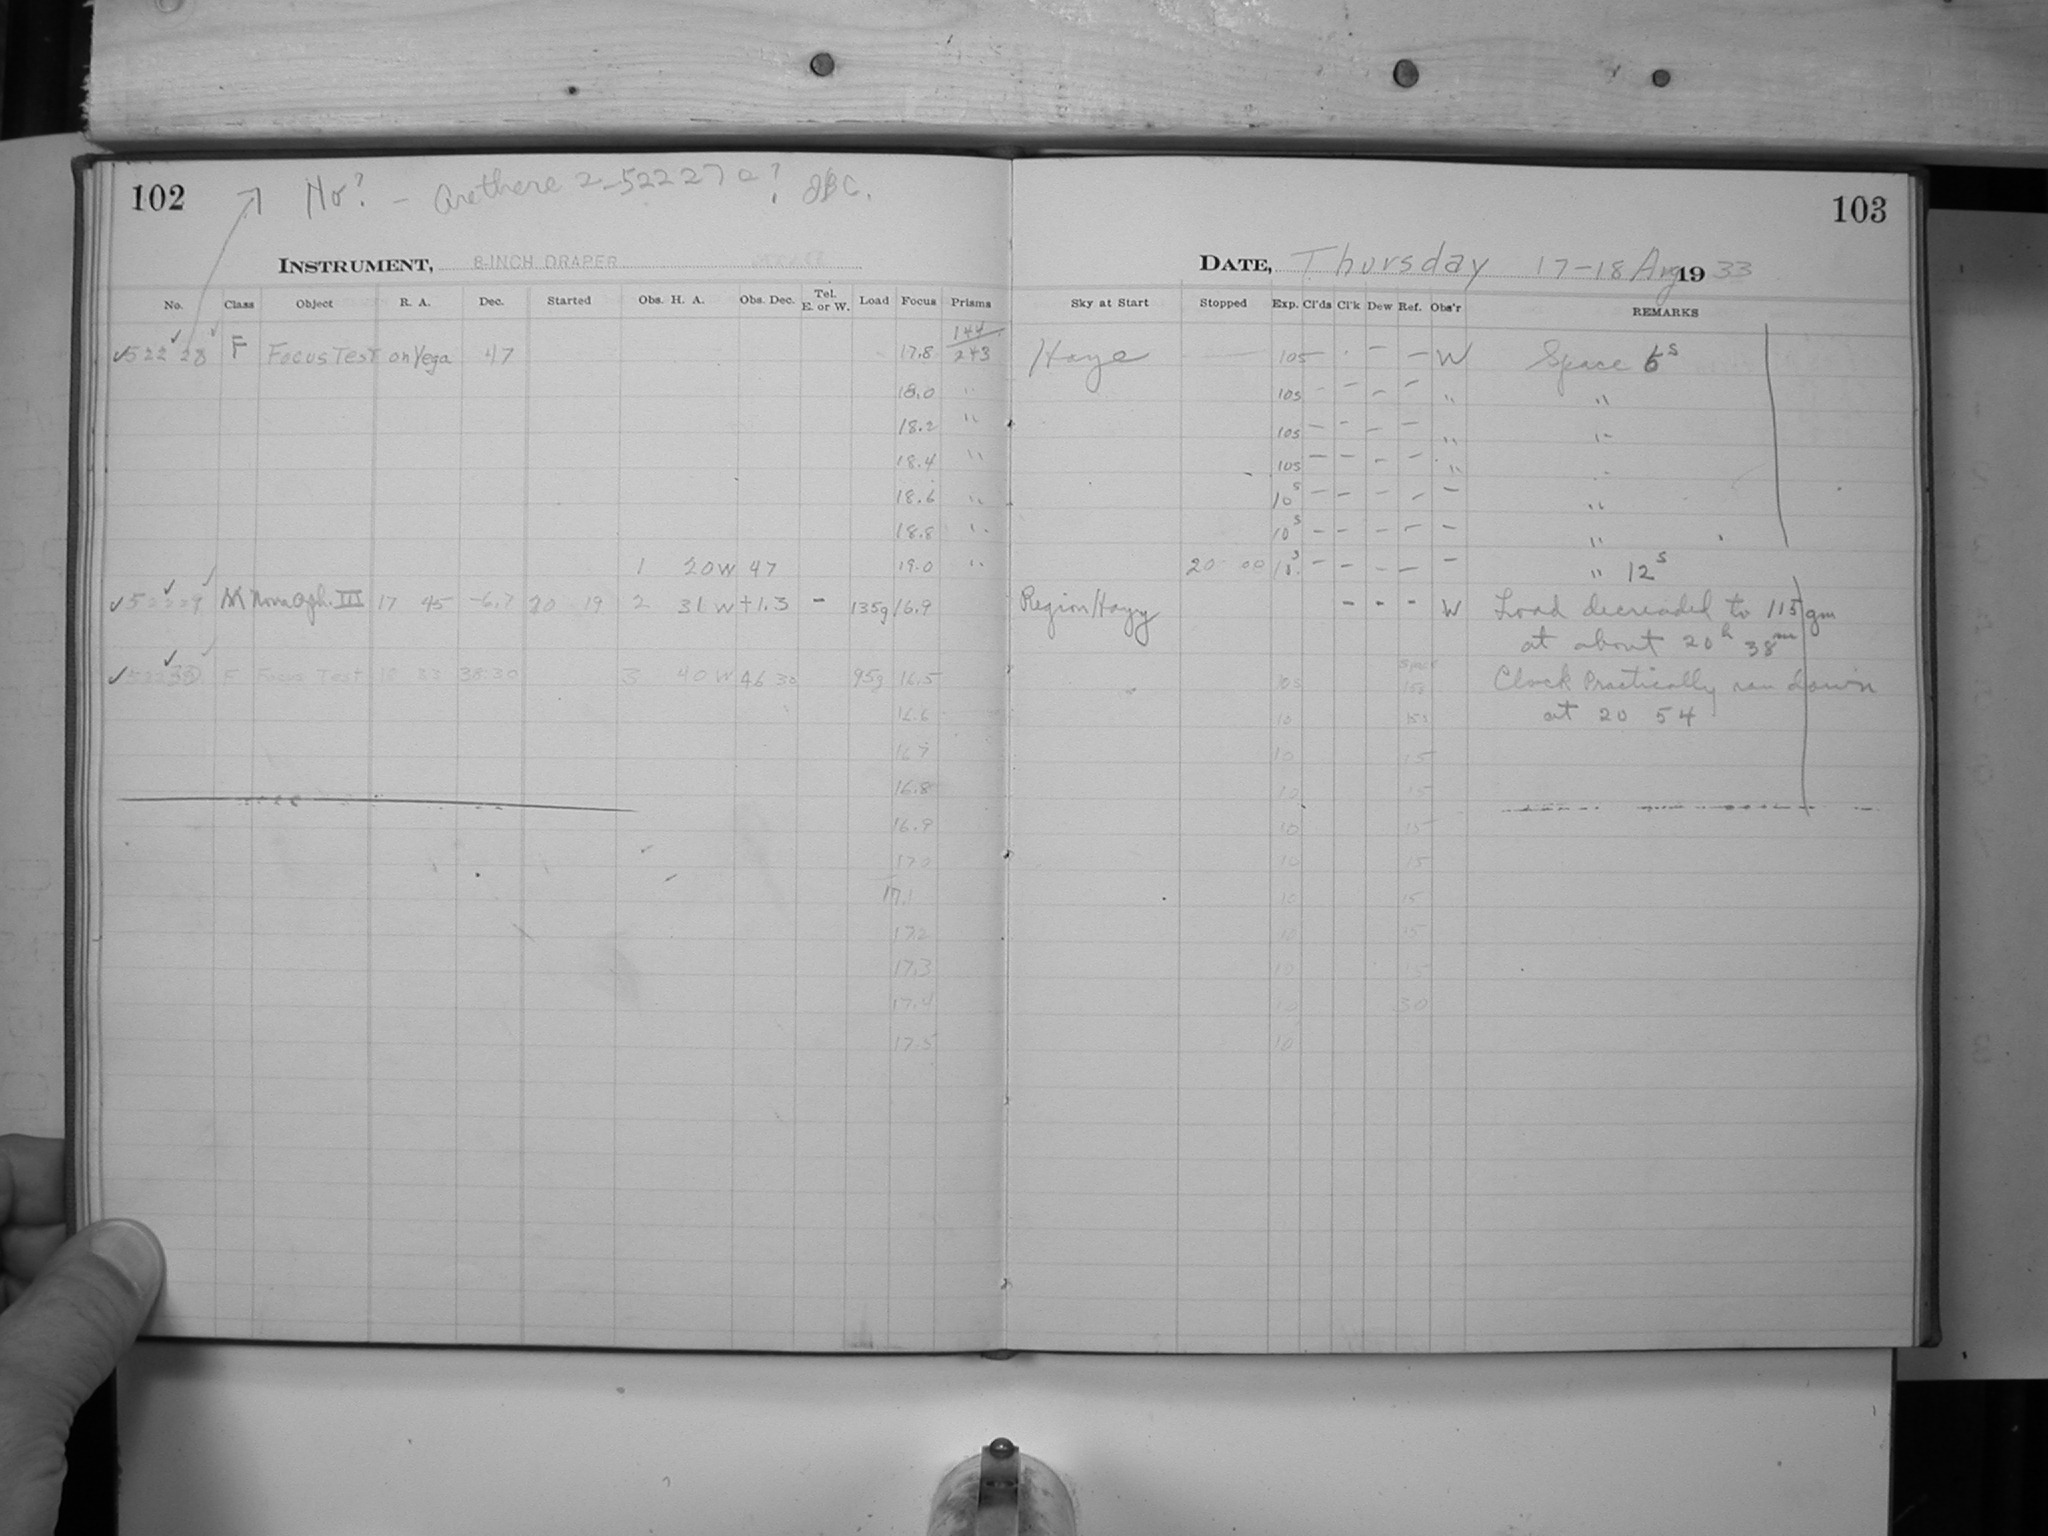 102 No? - Are there 2 - 52227a? JBC. 103
INSTRUMENT, 8-INCH DRAPER DATE, Thursday 17-18 Aug 1933
No. Class Object R. A. Dec. Started Obs. H. A. Obs. Dec. Tel. E. or W. Load Focus Prisms Sky at Start Stopped Exp. Cl'ds Cl'k Dew Ref. Obs'r REMARKS
144
✓52228 F Focus Test on Vega 47 17.8 243 Haze — 10s - - - W Space 6s
18.0 " 10s - - - - " "
18.2 " 10s - - - - " "
18.4 " 10s - - - - " "
18.6 " 10s - - - - - "
18.8 " 10s - - - - - "
1 20W 47 19.0 " 20 00 - - - - - " 12s
✓52229 Nova Oph. III 17 45 -6.7 20 19 2 31W +1.3 - 135g 16.9 Region Hazy - - - W Load decreaded to 115 gm
at about 20h 38m
space
✓52230 F Focus Test 18 33 38:30 3 40W 46 30 95g 16.5 10s 15s Clock Practically run down
16.6 10 15s at 20 54
16.7 10 15
16.8 10 15
16.9 10 15
17.0 10 15
17.1 10 15
17.2 10 15
17.3 10 15
17.4 10 30
17.5 10